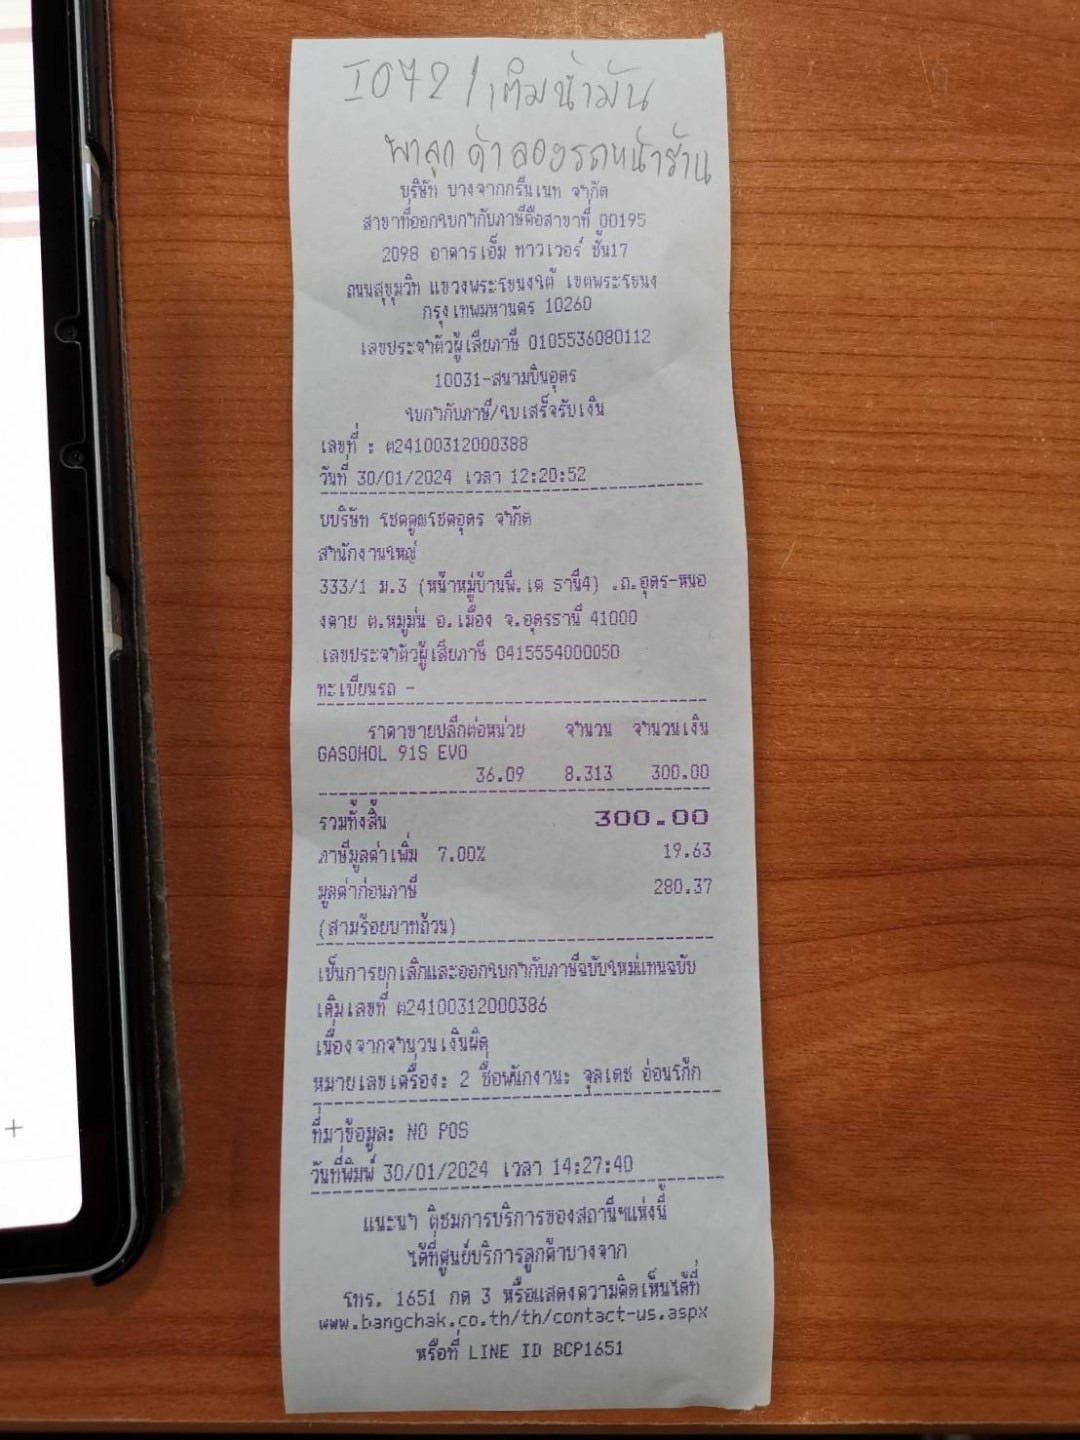 I072 / เติมน้ำมัน
พาลูกค้าลองรถหน้าร้าน
บริษัท บางจากกรีนเนท จำกัด
สาขาที่ออกใบกำกับภาษีคือสาขาที่ 00195
2098 อาคารเอ็ม ทาวเวอร์ ชั้น17
ถนนสุขุมวิท แขวงพระโขนงใต้ เขตพระโขนง
กรุงเทพมหานคร 10260
เลขประจำตัวผู้เสียภาษี 0105536080112
10031-สนามบินอุดร
ใบกำกับภาษี/ใบเสร็จรับเงิน
เลขที่ : ต24100312000388
วันที่ 30/01/2024 เวลา 12:20:52
บบริษัท โชคคูณโชคอุดร จำกัด
สำนักงานใหญ่
333/1 ม.3 (หน้าหมู่บ้านพี.เค ธานี4) .ถ.อุดร-หนอ
งคาย ต.หมูม่น อ.เมือง จ.อุดรธานี 41000
เลขประจำตัวผู้เสียภาษี 0415554000050
ทะเบียนรถ -
ราคาขายปลีกต่อหน่วย จำนวน จำนวนเงิน
GASOHOL 91S EVO
36.09 8.313 300.00
รวมทั้งสิ้น 300.00
ภาษีมูลค่าเพิ่ม 7.00% 19.63
มูลค่าก่อนภาษี 280.37
(สามร้อยบาทถ้วน)
เป็นการยกเลิกและออกใบกำกับภาษีฉบับใหม่แทนฉบับ
เดิมเลขที่ ต24100312000386
เนื่องจากจำนวนเงินผิด
หมายเลขเครื่อง: 2 ชื่อพนักงาน: จุลเดช อ่อนโก้ก
ที่มาข้อมูล: NO POS
วันที่พิมพ์ 30/01/2024 เวลา 14:27:40
แนะนำ ติชมการบริการของสถานีฯแห่งนี้
ได้ที่ศูนย์บริการลูกค้าบางจาก
โทร. 1651 กด 3 หรือแสดงความคิดเห็นได้ที่
www.bangchak.co.th/th/contact-us.aspx
หรือที่ LINE ID BCP1651